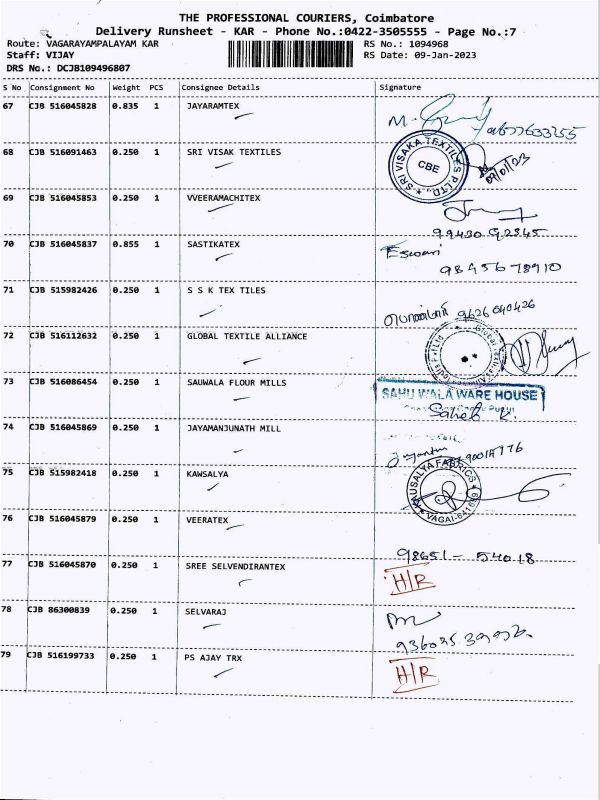 THE PROFESSIONAL COURIERS, Coimbatore
Delivery Runsheet - KAR - Phone No.:0422-3505555 - Page No.:7
Route: VAGARAYAMPALAYAM KAR RS No.: 1094968
Staff: VIJAY RS Date: 09-Jan-2023
DRS No.: DCJB109496807
S No Consignment No Weight PCS Consignee Details Signature
67 CJB 516045828 0.835 1 JAYARAMTEX
68 CJB 516091463 0.250 1 SRI VISAK TEXTILES SRI VISAKA TEXTILES P.LTD., CBE 09/01/23
69 CJB 516045853 0.250 1 VVEERAMACHITEX
99430 92845
70 CJB 516045837 0.855 1 SASTIKATEX Eswari
98456 78910
71 CJB 515982426 0.250 1 S S K TEX TILES
9626 040426
72 CJB 516112632 0.250 1 GLOBAL TEXTILE ALLIANCE
73 CJB 516086454 0.250 1 SAUWALA FLOUR MILLS SAHU WALA WARE HOUSE
Saheb K.
74 CJB 516045869 0.250 1 JAYAMANJUNATH MILL
75 CJB 515982418 0.250 1 KAWSALYA KAUSALYA FABRICS
76 CJB 516045879 0.250 1 VEERATEX
98651 - 54018
77 CJB 516045870 0.250 1 SREE SELVENDIRANTEX H/R
78 CJB 86300839 0.250 1 SELVARAJ
79 CJB 516199733 0.250 1 PS AJAY TRX H/R